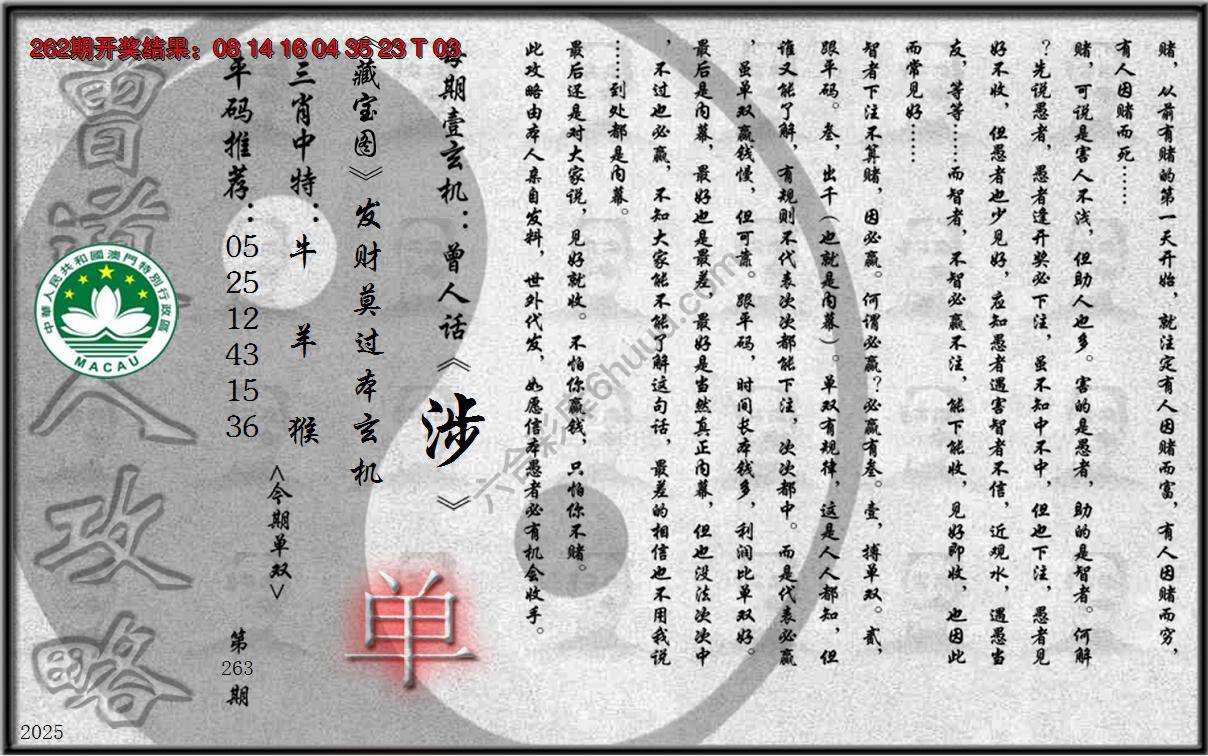 262期开奖结果：08 14 16 04 35 23 T 03
赌，从前有赌的第一天开始，就注定有人因赌而富，有人因赌而穷，
有人因赌而死……
赌，可说是害人不浅，但助人也多。害的是愚者，助的是智者。何解
？先说愚者，愚者逢开奖必下注，虽不知中不中，但也下注，愚者见
好不收，但愚者也少见好，应知愚者遇害智者不信，近观水，遇愚当
友，等等……而智者，不智必赢不注，能下能收，见好即收，也因此
而常见好……
智者下注不算赌，因必赢。何谓必赢？必赢有叁。壹，搏单双。贰，
跟平码。叁，出千（也就是内幕）。单双有规律，这是人人都知，但
谁又能了解，有规则不代表次次都能下注，次次都中。而是代表必赢
，虽单双赢钱慢，但可靠。跟平码，时间长本钱多，利润比单双好。
最后是内幕，最好也是最差，最好是当然真正内幕，但也没法次次中
，不过也必赢，不知大家能不能了解这句话，最差的相信也不用我说
……到处都是内幕。
最后还是对大家说，见好就收。不怕你赢钱，只怕你不赌。
此攻略由本人亲自发料，世外代发，如愿信本愚者必有机会收手。
每期壹玄机：曾人话《涉》
《藏宝图》发财莫过本玄机
三肖中特：牛 羊 猴
平码推荐：05 25 12 43 15 36
<今期单双>
单
第263期
曾道人攻略
中華人民共和國澳門特別行政區
MACAU
六合彩库6huuu.com
2025